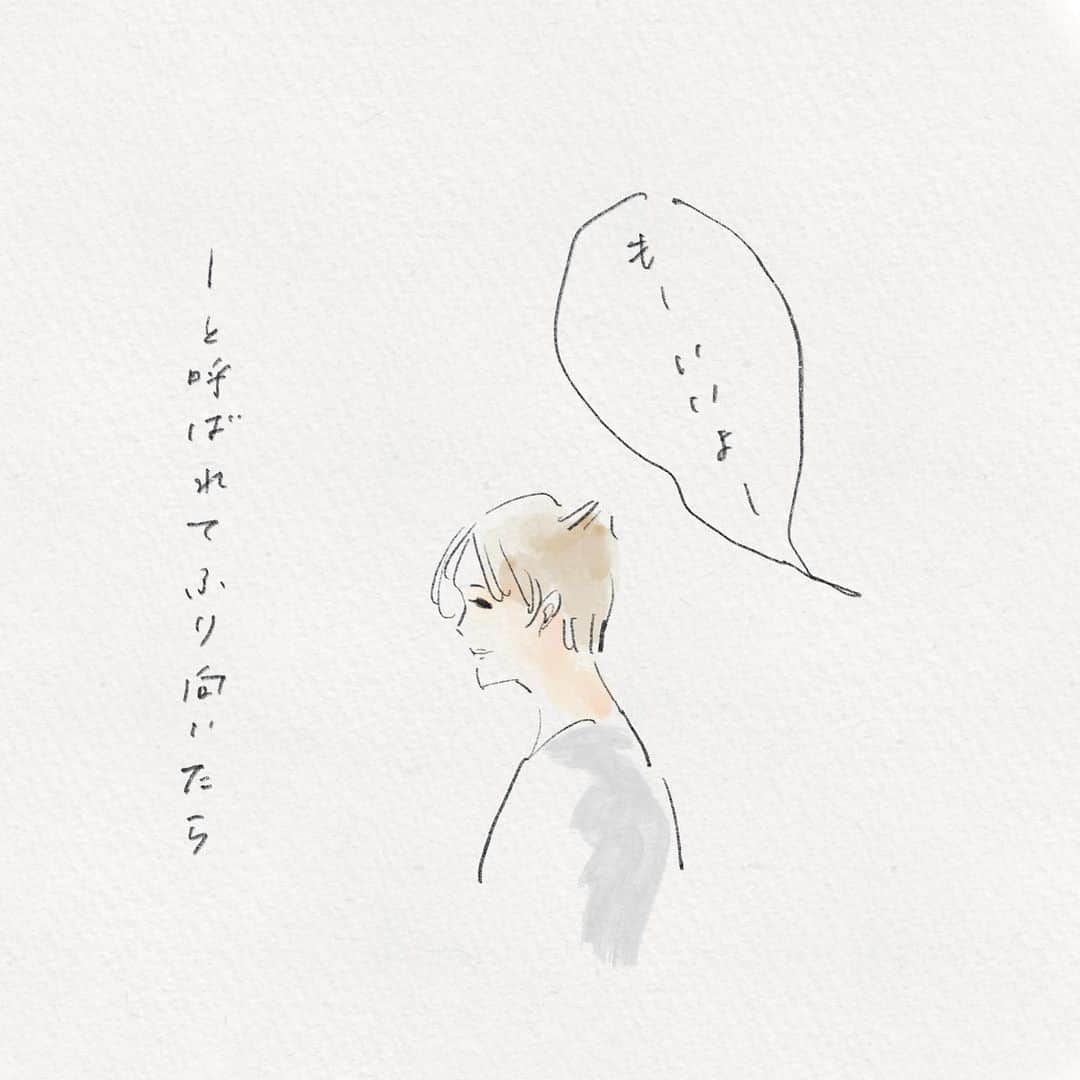 もーいいよー
ーと呼ばれてふり向いたら